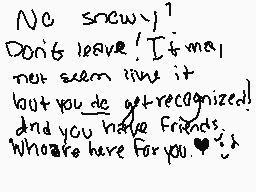 No snowy!
Don't leave! It may
not seem like it
but you do get recognized!
And you have friends
who are here for you. ♥ :)